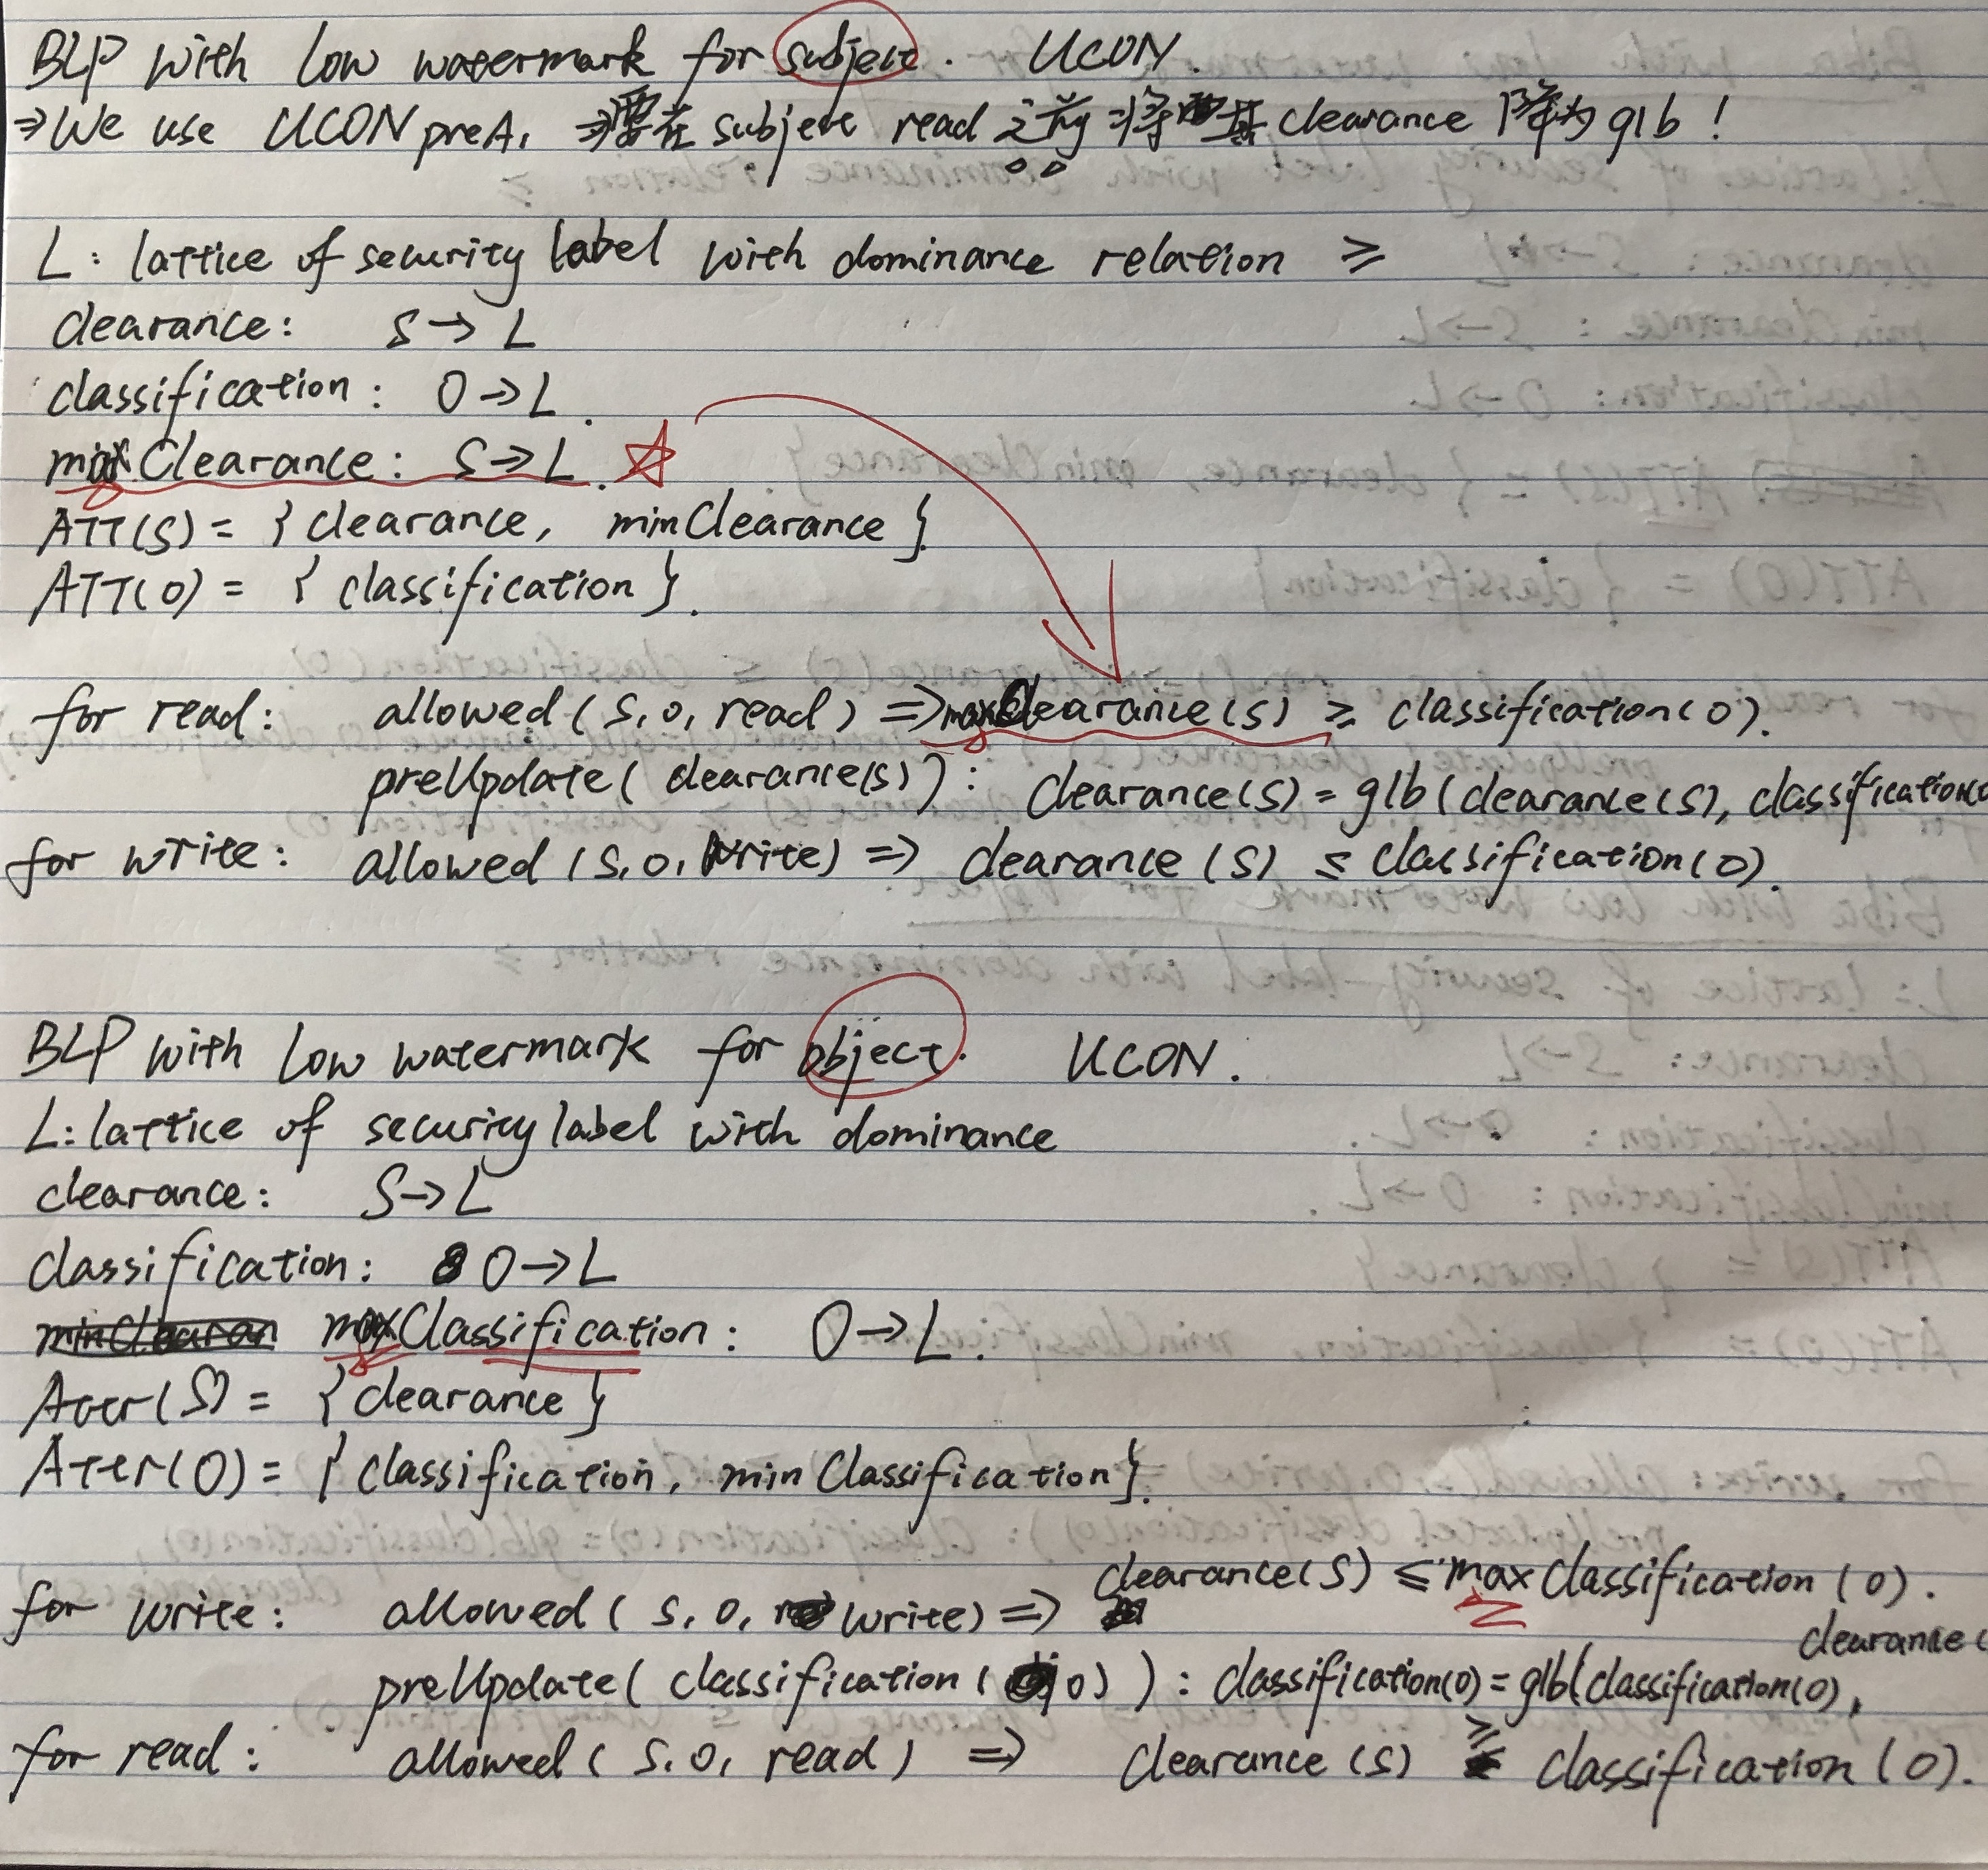 BLP with low watermark for subject. UCON.
⇒We use UCON preA₁ ⇒要在 subject read 之前 将其 clearance 降为 glb!
L: lattice of security label with dominance relation ≥
clearance: S→L
classification: O→L.
maxClearance: S→L. ☆
ATT(S) = {clearance, minClearance}.
ATT(O) = {classification}.
for read: allowed(s, o, read) ⇒ maxClearance(s) ≥ classification(o).
preUpdate(clearance(s)): clearance(s) = glb(clearance(s), classification(o
for write: allowed(s, o, write) ⇒ clearance(s) ≤ classification(o).
BLP with low watermark for object. UCON.
L: lattice of security label with dominance
clearance: S→L
classification: O→L
minClearan maxClassification: O→L.
ATTR(S) = {clearance}
ATTR(O) = {classification, minClassification}.
for write: allowed(s, o, write) ⇒ clearance(s) ≤ maxClassification(o).
preUpdate(classification(o)): classification(o) = glb(classification(o), clearance(
for read: allowed(s, o, read) ⇒ clearance(s) ≥ classification(o).